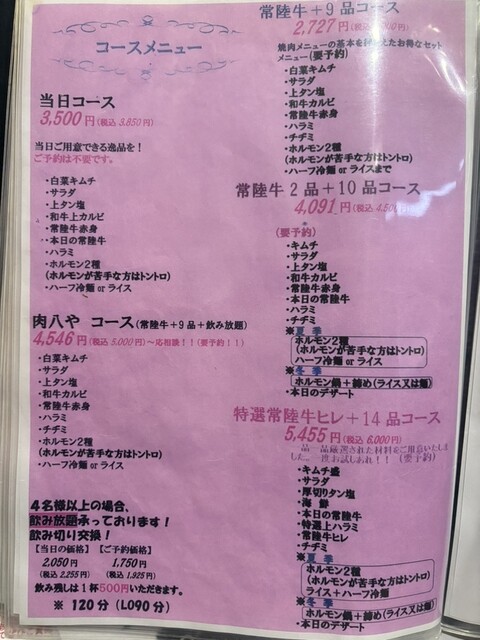 コースメニュー
当日コース
3,500円(税込 3,850円)
当日ご用意できる逸品を！
ご予約は不要です。
・白菜キムチ
・サラダ
・上タン塩
・和牛上カルビ
・常陸牛赤身
・本日の常陸牛
・ハラミ
・ホルモン2種
(ホルモンが苦手な方はトントロ)
・ハーフ冷麺 or ライス
肉八や コース(常陸牛＋9品＋飲み放題)
4,546円(税込 5,000円)～応相談！！(要予約！！)
・白菜キムチ
・サラダ
・上タン塩
・和牛カルビ
・常陸牛赤身
・ハラミ
・チヂミ
・ホルモン2種
(ホルモンが苦手な方はトントロ)
・ハーフ冷麺 or ライス
4名様以上の場合、
飲み放題承っております！
飲み切り交換！
【当日の価格】 【ご予約価格】
2,050円 1,750円
(税込 2,255円) (税込 1,925円)
飲み残しは1杯500円いただきます。
※ 120分 (LO90分)
常陸牛＋9品コース
2,727円(税込
焼肉メニューの基本を えたお得なセット
メニュー(要予約)
・白菜キムチ
・サラダ
・上タン塩
・和牛カルビ
・常陸牛赤身
・ハラミ
・チヂミ
・ホルモン2種
(ホルモンが苦手な方はトントロ)
・ハーフ冷麺 or ライスまで
常陸牛2品＋10品コース
4,091円(税込
(要予約)
・キムチ
・サラダ
・上タン塩
・和牛カルビ
・常陸牛赤身
・本日の常陸牛
・ハラミ
・チヂミ
※夏季
ホルモン2種
(ホルモンが苦手な方はトントロ)
ハーフ冷麺 or ライス
※冬季
ホルモン鍋＋締め(ライス又は麺)
・本日のデザート
特選常陸牛ヒレ＋14品コース
5,455円(税込 6,000円)
品 品厳選された材料をご用意いたしま
した。 度お試しあれ！！ (要予約)
・キムチ盛
・サラダ
・厚切りタン塩
・海鮮
・本日の常陸牛
・特選上ハラミ
・常陸牛ヒレ
・チヂミ
※夏季
ホルモン2種
(ホルモンが苦手な方はトントロ)
ライス＋ハーフ冷麺
※冬季
ホルモン鍋＋締め(ライス又は麺)
・本日のデザート